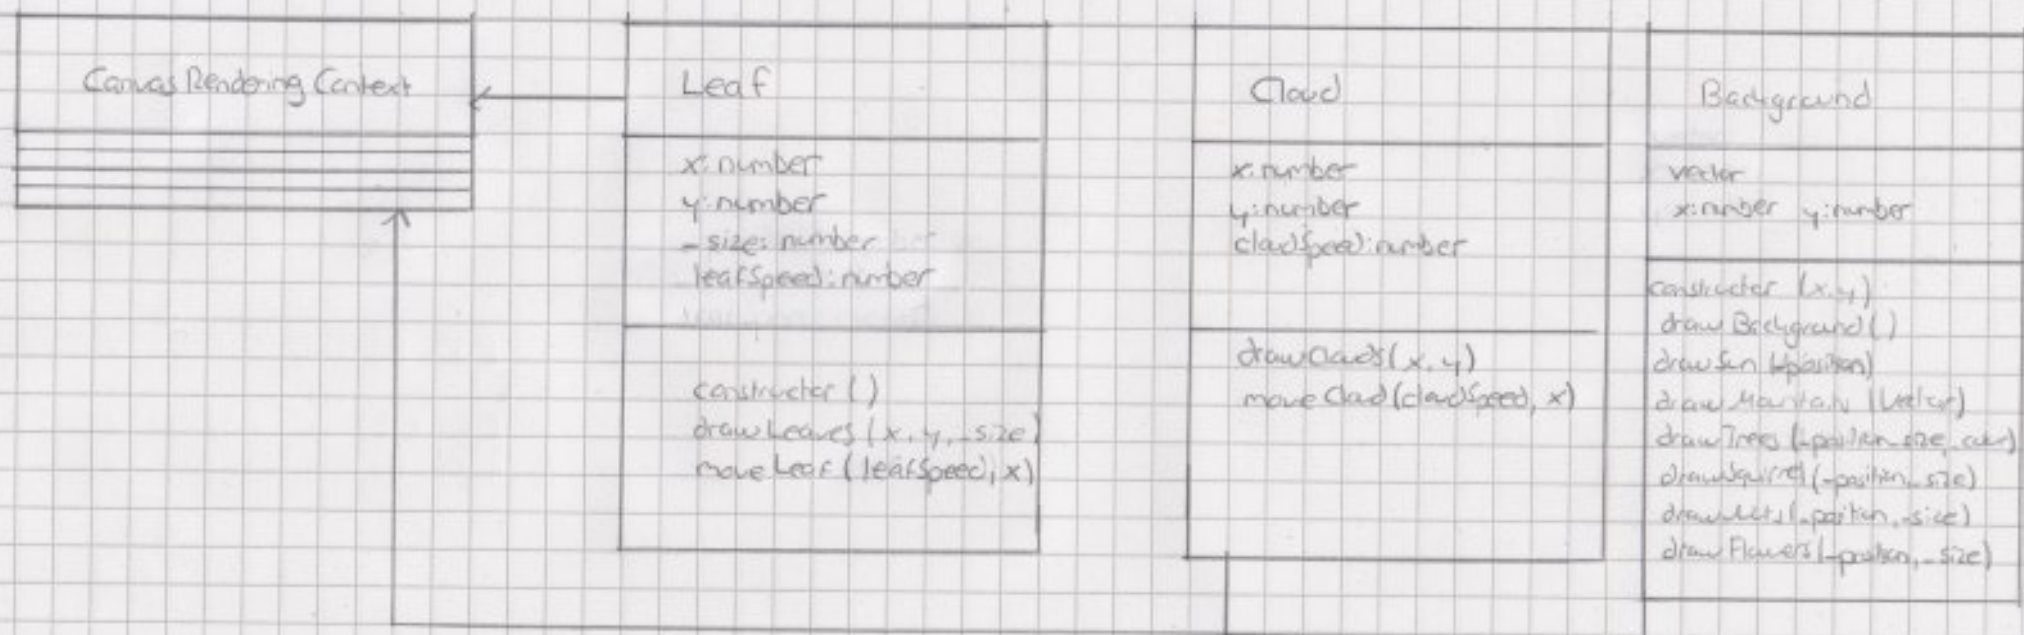 Canvas Rendering Context
Leaf
x: number
y: number
_size: number
leafSpeed: number
constructor ()
drawLeaves (x, y, _size)
moveLeaf (leafSpeed, x)
Cloud
x: number
y: number
cloudSpeed: number
drawClouds (x, y)
moveCloud (cloudSpeed, x)
Background
vector
x: number y: number
constructor (x, y)
drawBackground ()
drawSun (_position)
drawMountain (Vector)
drawTrees (_position, _size, _color)
drawSquirrel (_position, _size)
(_position, _size)
drawFlowers (_position, _size)